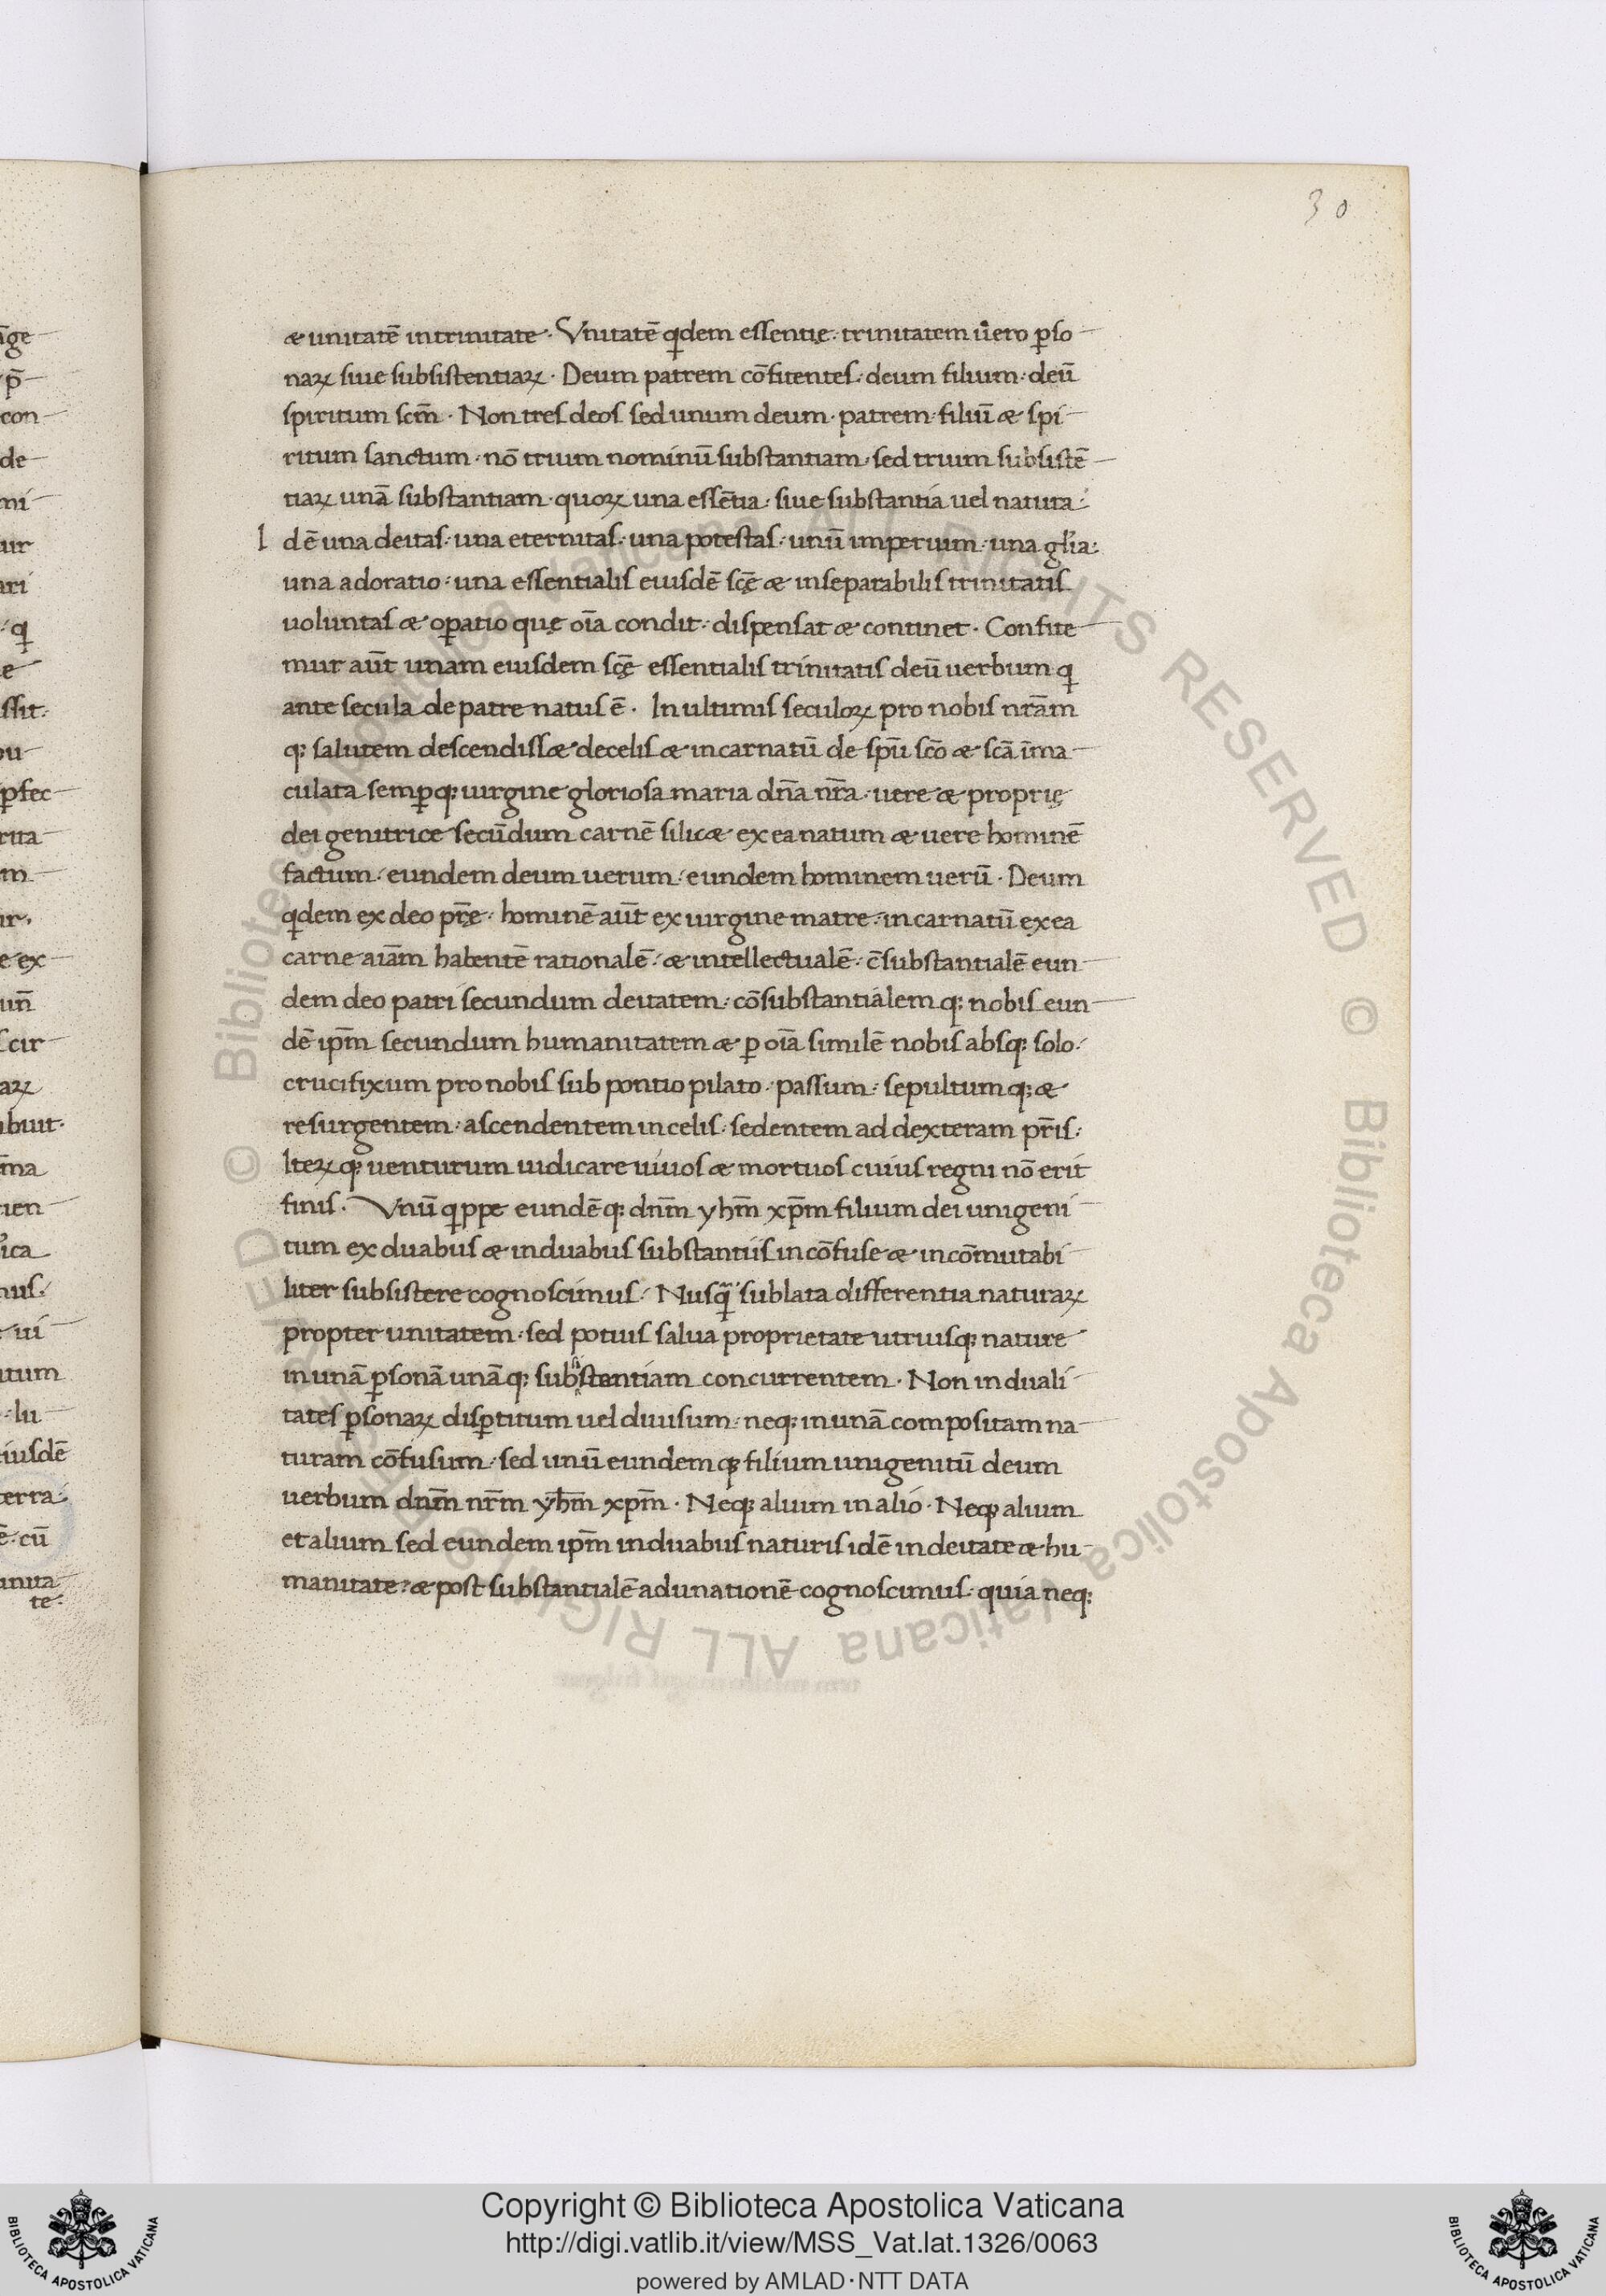 30
& unitatē in trinitate · Vnitatē qdem essentię · trinitatem ůero ꝑso
naꝝ siue subsistentiaꝝ · Deum patrem cōfitentes · deum filium · deū
spiritum scm̄ · Non tres deos sed unum deum · patrem · filiū & spi
ritum sanctum · nō trium nominū substantiam · sed trium subsistē
tiaꝝ unā substantiam · quoꝝ una essētia · siue substantia uel natura ·
l dē una deitas · una eternitas · una potestas · unū imperium · una glīa ·
una adoratio · una essentialis eiusdē scę̄ & inseparabilis trinitatis
uoluntas & oꝑatio quę oīa condit · dispensat & continet · Confite
mur aūt unam eiusdem scę̄ essentialis trinitatis deū uerbum q
ante secula de patre natus ē · In ultimis seculoꝝ pro nobis nrām
q; salutem descendiss& de celis & incarnatū de spū scō & scā īma
culata semꝑq; uirgine gloriosa maria dn̄a nr̄a · uere & proprię
dei genitrice secūdum carnē silic& ex ea natum & uere hominē
factum · eundem deum uerum · eundem hominem uerū · Deum
qdem ex deo pr̄ę · hominē aūt ex uirgine matre · incarnatū ex ea
carne aiām habentē rationalē · & intellectualē · c̄substantialē eun
dem deo patri secundum deitatem · cōsubstantialem q; nobis eun
dē ipm̄ secundum humanitatem & ꝑ oīa similē nobis absq; solo ·
crucifixum pro nobis sub pontio pilato · passum · sepultum q; &
resurgentem · ascendentem in celis · sedentem ad dexteram pr̄is ·
Iteꝝ q; uenturum iudicare uiuos & mortuos cuius regni nō erit
finis · Vnū qppe eundē q; dnm̄ yhm̄ xpm̄ filium dei unigeni
tum ex duabus & in duabus substantiis incōfuse & incōmutabi
liter subsistere cognoscimus · Nusq̄ sublata differentia naturaꝝ
propter unitatem · sed potius salua proprietate utriusq; nature
in unā ꝑsonā unā q; substentiam concurrentem · Non in duali
tates ꝑsonaꝝ disꝑtitum uel diuisum · neq; in unā compositam na
turam cōfusum · sed unū eundem q; filium unigenitū deum
uerbum dnm̄ nr̄m yhm̄ xpm̄ · Neq; alium in alio · Neq; alium
et alium sed eundem ipm̄ in duabus naturis idē in deitate & hu
manitate · & post substantialē adunationē cognoscimus · quia neq;
Copyright © Biblioteca Apostolica Vaticana
http://digi.vatlib.it/view/MSS_Vat.lat.1326/0063
powered by AMLAD·NTT DATA